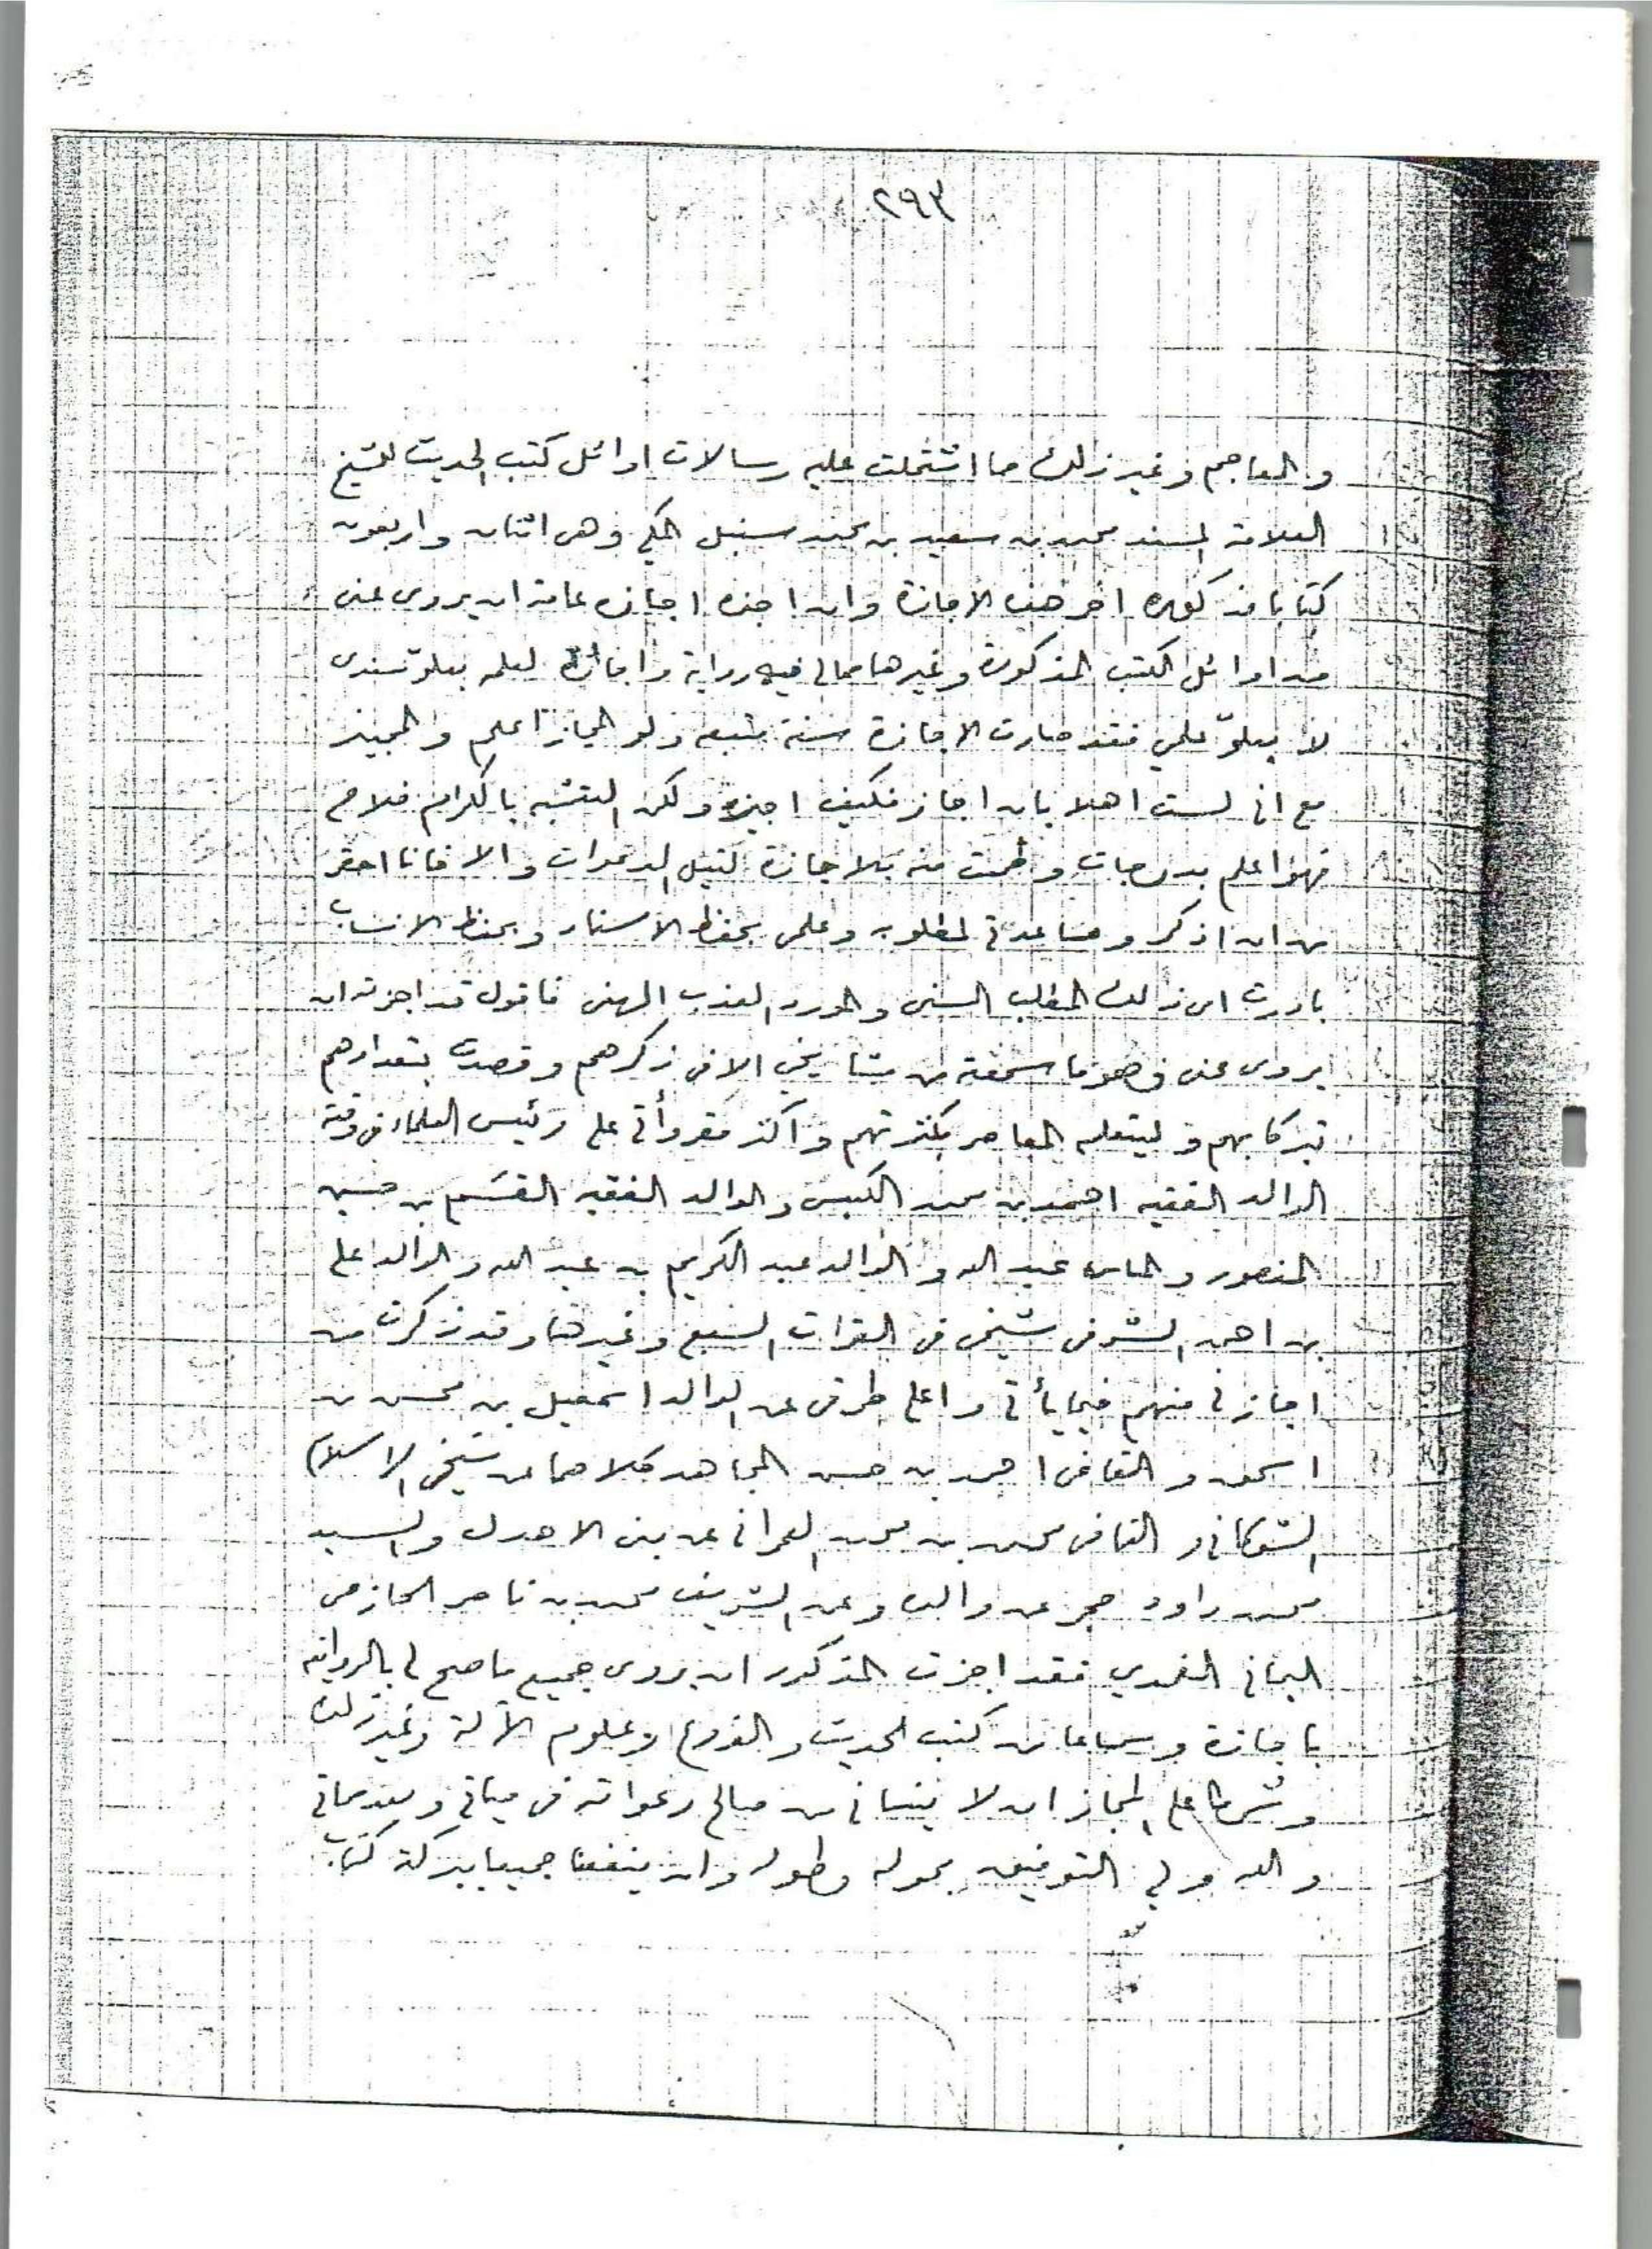 ٢٩٣
والمعاجم وغير ذلك مما اشتملت عليه رسالات اوائل كتب الحديث للشيخ
العلامة المسند محمد بن سعيد بن محمد سنبل المكي وهى اثنان واربعون
كتابا مذكوره اخر هذه الاجازة وان اجزه اجازه عامة ان يروى عنى
من اوائل الكتب المذكورة وغيرها مما لى فيه رواية واجازة لعلمه بعلو سندى
لا بعلو علمي فقد صارت الاجازة سنة متبعه ولو المجاز اعلم والمجيز
مع انى لست اهلا بان اجاز فكيف اجيز ولكن التشبه بالكرام فلاح
فهو اعلم بدرجات وطمعت منه بالاجازة لنيل الدعوات والا فانا احقر
من ان اذكر ومساعدة لمطلوبه وعلمى بحفظ الاسناد وبحفظ الانساب
بادرت الى ذلك المطلب السنى والمورد العذب الهنى فاقول قد اجزته ان
يروى عنى وهو ما سمعته من مشايخي الاتى ذكرهم وقصدت بتعدادهم
تبركا بهم وليعلم المعاصر بكثرتهم واكثر مقروأتى على رئيس العلماء فى وقته
الوالد الفقيه احمد بن محمد الكبسى والوالد الفقيه القسم بن حسين
المنصور والماس عبد الله والوالد عبد الكريم بن عبد الله والوالد على
بن احمد الشرفى شيخى فى القرات السبع وغيرها وقد ذكرت من
اجازنى منهم فيما يأتى واعلى طرقى عن الوالد اسمعيل بن محسن بن
اسحق والقاضى احمد بن حسن المجاهد كلاهما عن شيخى الاسلام
الشوكانى والقاضى محمد بن محمد العمرانى عن بنى الاهدل والسيد
محمد داود حجر عن والده وعن الشريف محمد بن ناصر الحازمى
اليمانى الضمدي فقد اجزت المذكور ان يروى جميع ما صح لى بالرواية
باجازة وسماعا من كتب الحديث والفروع وعلوم الآلة وغير ذلك
وشرطا على المجاز ان لا ينسانى من صالح دعواته فى حياتى وبعد مماتى
والله ولي التوفيق بحوله وطوله وان ينفعنا جميعا ببركة كتاب